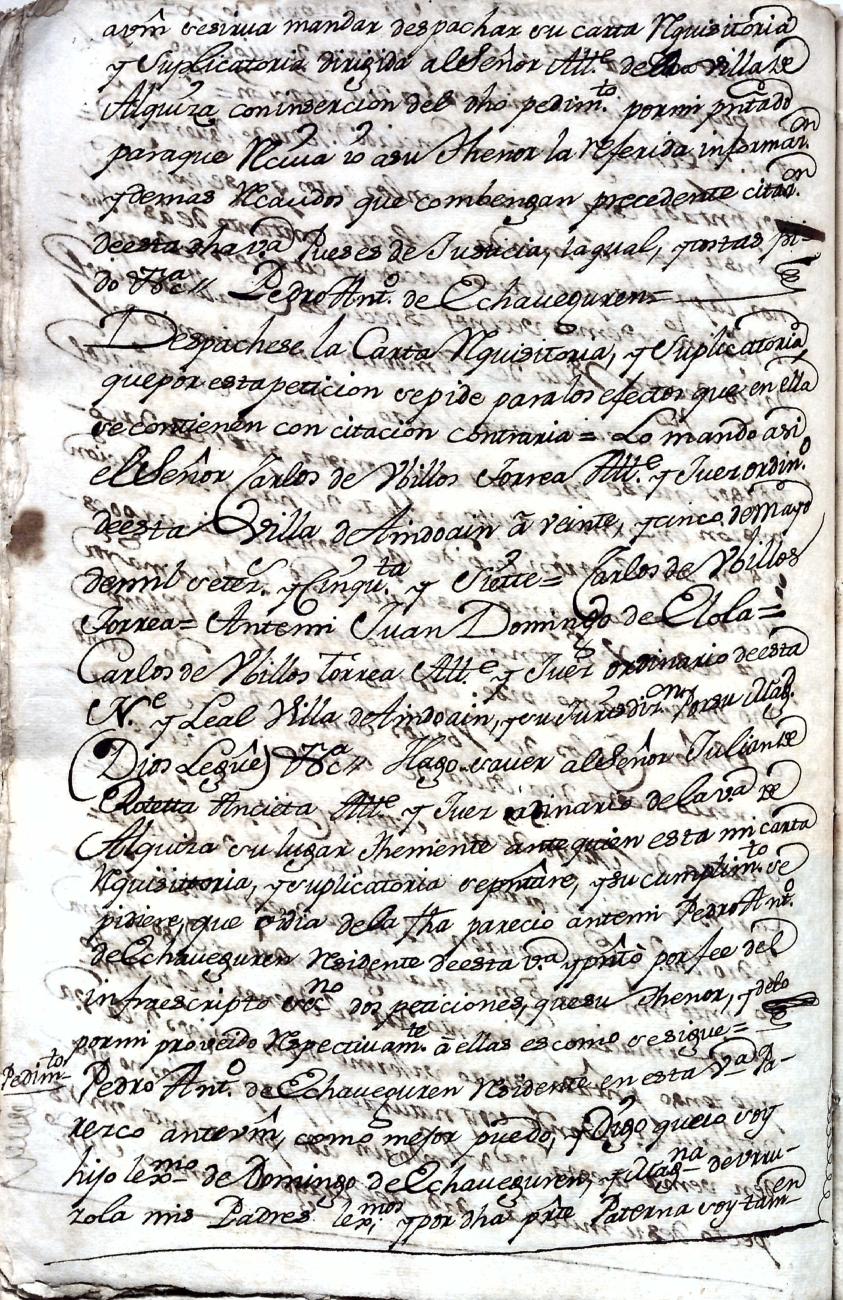 avm̃ se sirva mandar despachar su carta Rquisitoria
y Suplicatoria dirigida al Señor All.e de la villa de
Alquiza con insercion del dho pedim.to por mi pñtado
para que Rciva io a su thenor la referida informaz.on
y demas Rcaudos que combengan precedente citaz.on
de esta dha v.a Pues es de Justicia, la qual, y costas pi-
do &c.a Pedro Ant.o de Echaveguren=
Despachese la Carta Rquisitoria, y Suplicatoria
que por esta peticion se pide para los efectos que en ella
se contienen con citacion contraria = Lo mando asi
el Señor Carlos de Ubillos Torrea All.e y Juez ordin.o
de esta Villa de Aindoain â veinte, y cinco de Mayo
de mil setez.s y Cinqu.ta y Siette = Carlos de Ubillos
Torrea = Antemi Juan Domingo de Elola =
Carlos de Ubillos Torrea All.e y Juez ordinario de esta
N.e y Leal Villa de Aindoain, y su Jurisdiz.n por su Mag.
(Dios Legûe) &c.a Hago saver al Señor Julian de
Rotetta Ancieta All.e y Juez ordinario de la v.a de
Alquiza su lugar Themiente ante quien esta mi carta
Rquisittoria, y suplicatoria se pñtâre, y su cumplim.to se
pidiere, que oi dia de la fha parecio antemi Pedro Ant.o
de Echaveguren Rsidente de esta v.a y pñtò por fee del
infraescripto ess.no dos peticiones, que su thenor, y delo
por mi proveido Rspectivam.te â ellas es como se sigue =
Pedim.to
Pedro Ant.o de Echaveguren Rsidente en esta V.a Pa-
rezco ante vm̃, como mejor puedo, y Digo que io soy
hijo lex.mo de Domingo de Echaveguren, y Mag.na de Urru-
zola mis Padres lex.mos, y por dha pr̃te Paterna soy tam-
en